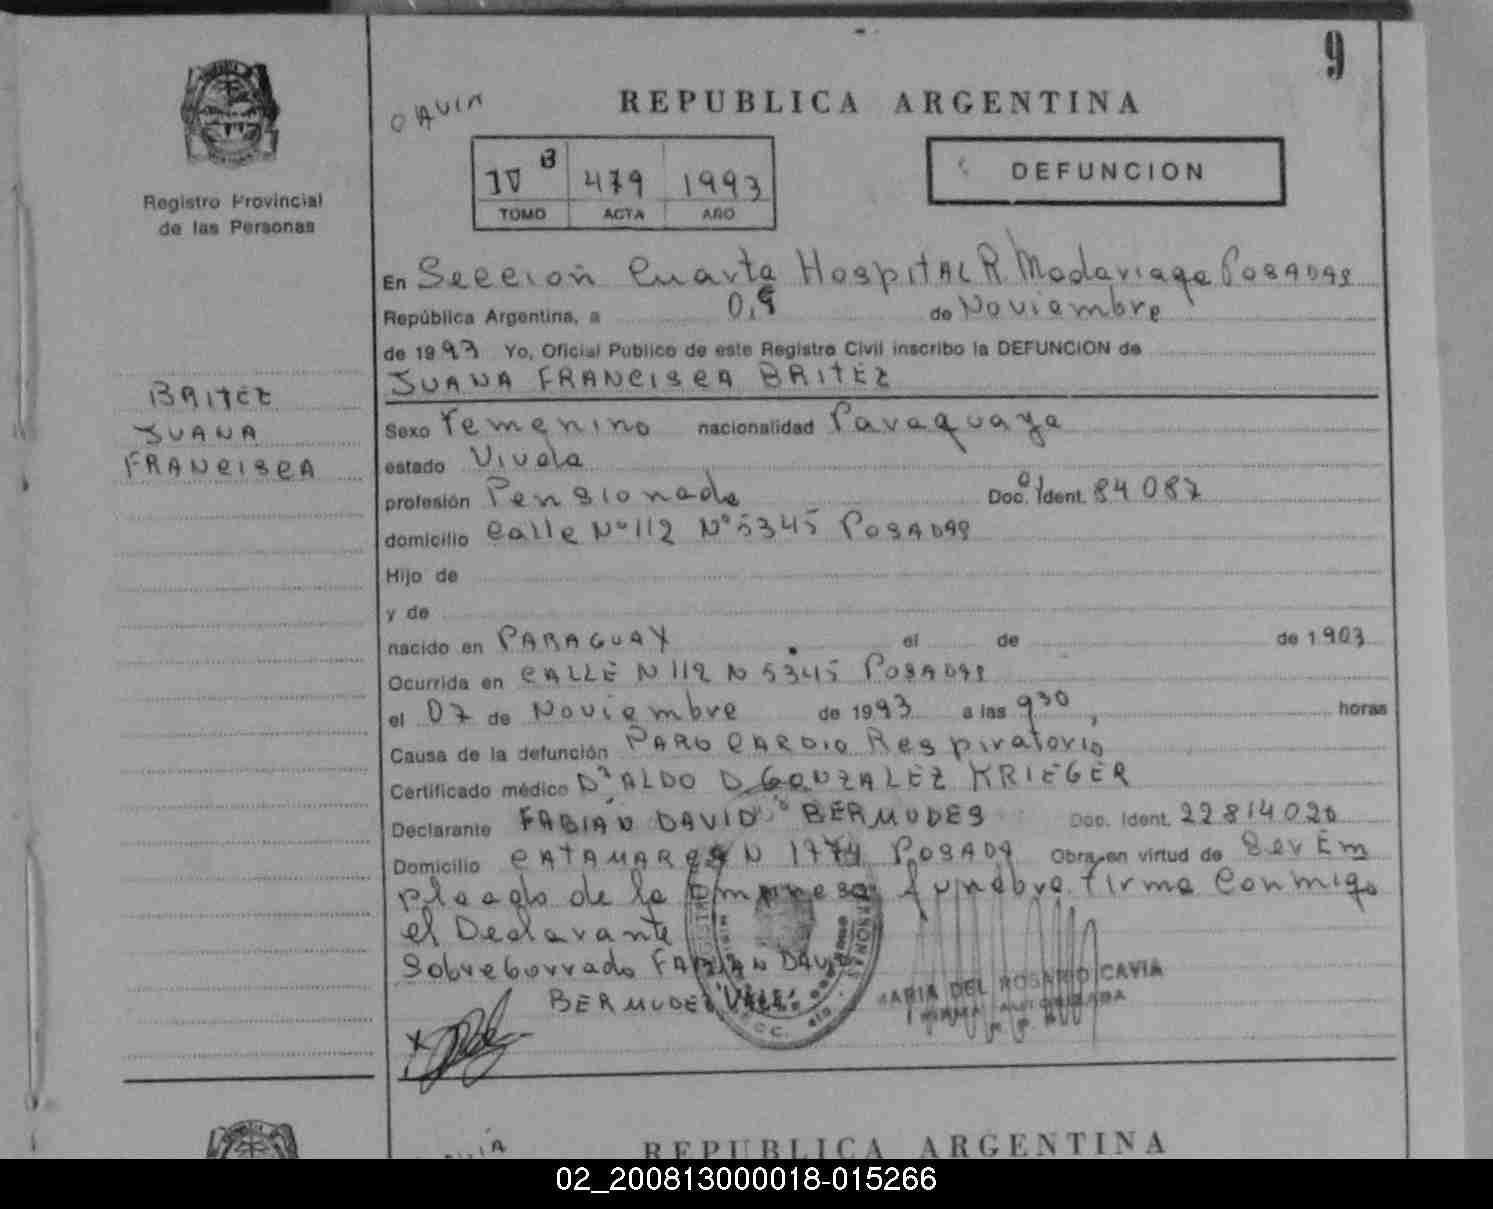 9
REPUBLICA ARGENTINA
IV B 479 1993
TOMO ACTA AÑO
DEFUNCION
Registro Provincial
de las Personas
En Seccion Cuarta Hospital R. Madariaga Posadas
República Argentina, a 09 de Noviembre
de 1993 Yo, Oficial Público de este Registro Civil inscribo la DEFUNCION de
JUANA FRANCISCA BRITEZ
BRITEZ
JUANA
FRANCISCA
Sexo Femenino nacionalidad Paraguaya
estado Viuda
profesión Pensionada Doc. Ident. 84 087
domicilio Calle Nº 112 Nº 5345 Posadas
Hijo de
y de
nacido en PARAGUAY el de de 1903
Ocurrida en CALLE N 112 N 5345 Posadas
el 07 de Noviembre de 1993 a las 930, horas
Causa de la defunción PARO CARDIO Respiratorio
Certificado médico Dr ALDO D GONZALEZ KRIEGER
Declarante FABIAN DAVID BERMUDES Doc. Ident. 22814020
Domicilio CATAMARCA N 1774 POSADAS Obra en virtud de Ser Em
pleado de la Empresa funebre firma Conmigo
el Declarante
Sobreborrado FABIAN DAVID
BERMUDEZ VALE
MARIA DEL ROSARIO CAVIA
FIRMA AUTORIZADA
REPUBLICA ARGENTINA
02_200813000018-015266